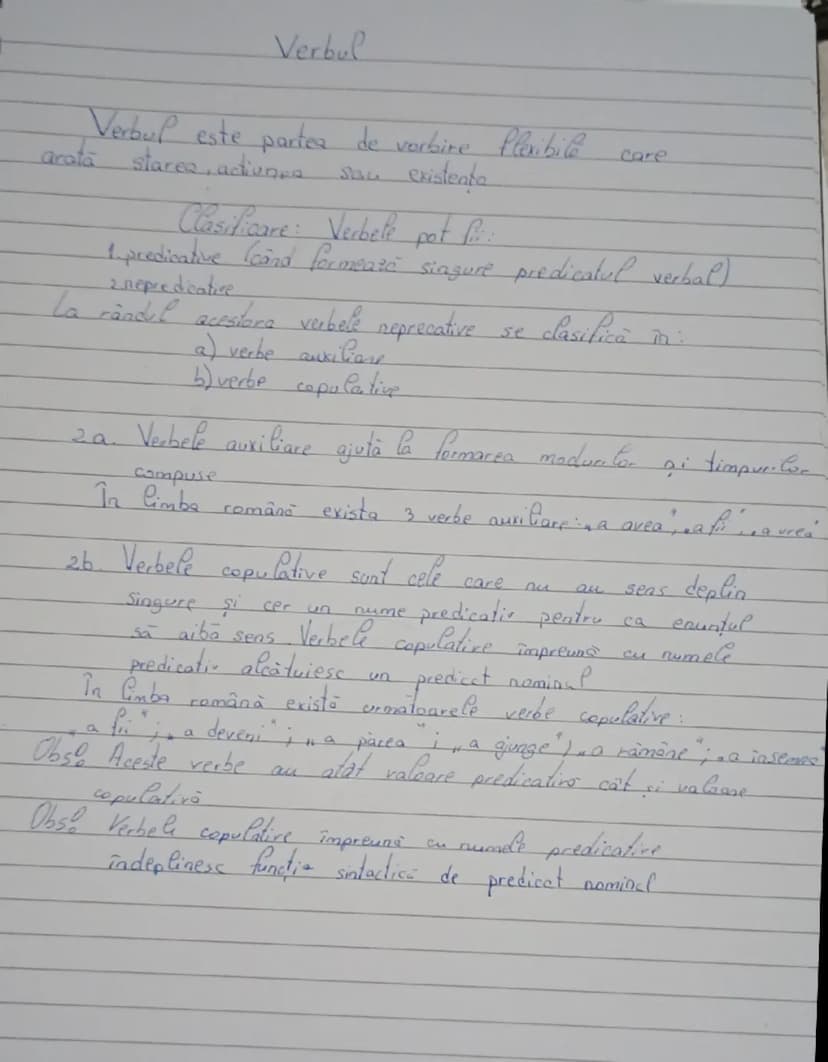 Verbul
Verbul este partea de vorbire flexibilă care
arată starea, acțiunea sau existența
Clasificare: Verbele pot fi:
1. predicative (când formează singure predicatul verbal)
2. nepredicative
La rândul acestora verbele neprecative se clasifică în:
a) verbe auxiliare
b) verbe copulative
2a. Verbele auxiliare ajută la formarea modurilor și timpurilor
compuse
În limba română exista 3 verbe auxiliare: „a avea", „a fi", „a vrea"
2b. Verbele copulative sunt cele care nu au sens deplin
singure și cer un nume predicativ pentru ca enunțul
să aibă sens Verbele copulative împreună cu numele
predicativ alcătuiesc un predicat nominal
În limba română există următoarele verbe copulative:
„a fi"; „a deveni"; „a părea"; „a ajunge"; „a rămâne"; „a însemna
Obs: Aceste verbe au atât valoare predicativă cât și valoare
copulativă
Obs: Verbele copulative împreună cu numele predicative
îndeplinesc funcția sintactică de predicat nominal